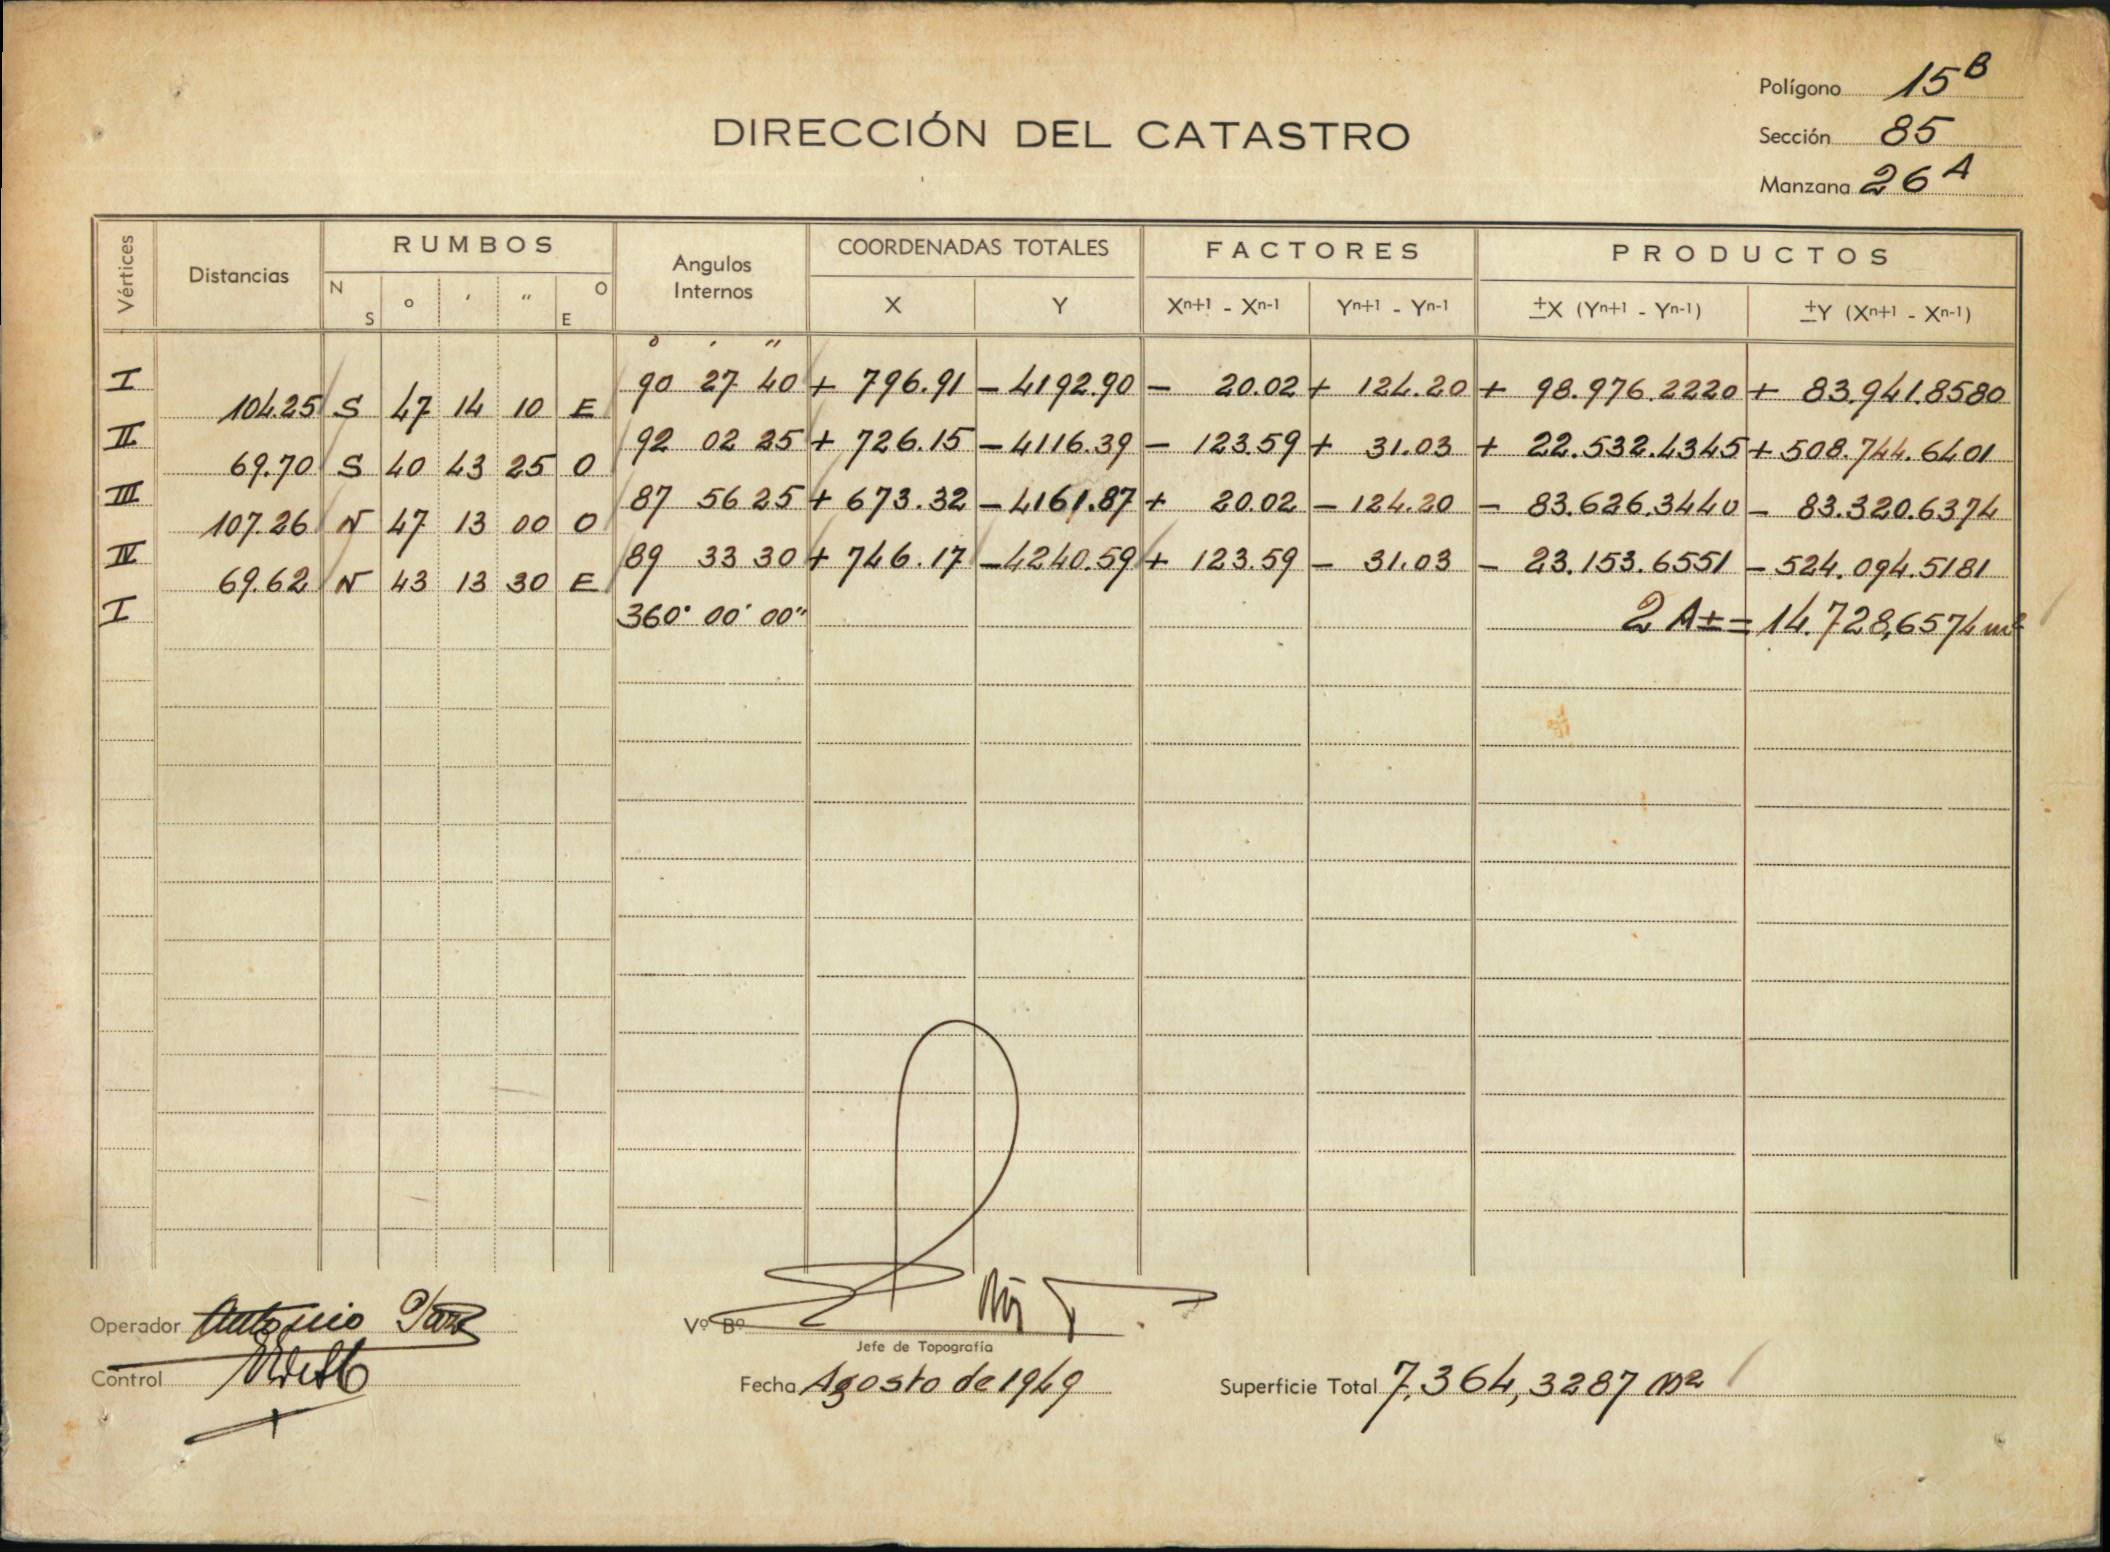 Polígono 15 B
DIRECCIÓN DEL CATASTRO
Sección 85
Manzana 26 A
Vértices Distancias RUMBOS Angulos Internos COORDENADAS TOTALES FACTORES PRODUCTOS
N S ° ' " O E X Y Xn+1 - Xn-1 Yn+1 - Yn-1 ±X (Yn+1 - Yn-1) ±Y (Xn+1 - Xn-1)
° ' "
I 90 27 40 + 796.91 - 4192.90 - 20.02 + 124.20 + 98.976.2220 + 83.941.8580
104.25 S 47 14 10 E
II 92 02 25 + 726.15 - 4116.39 - 123.59 + 31.03 + 22.532.4345 + 508.744.6401
69.70 S 40 43 25 O
III 87 56 25 + 673.32 - 4161.87 + 20.02 - 124.20 - 83.626.3440 - 83.320.6374
107.26 N 47 13 00 O
IV 89 33 30 + 746.17 - 4240.59 + 123.59 - 31.03 - 23.153.6551 - 524.094.5181
69.62 N 43 13 30 E
I 360° 00' 00" 2 A ± = 14.728,6574 m²
Operador Antonio
Vº Bº
Jefe de Topografía
Control
Fecha Agosto de 1949
Superficie Total 7.364,3287 m²